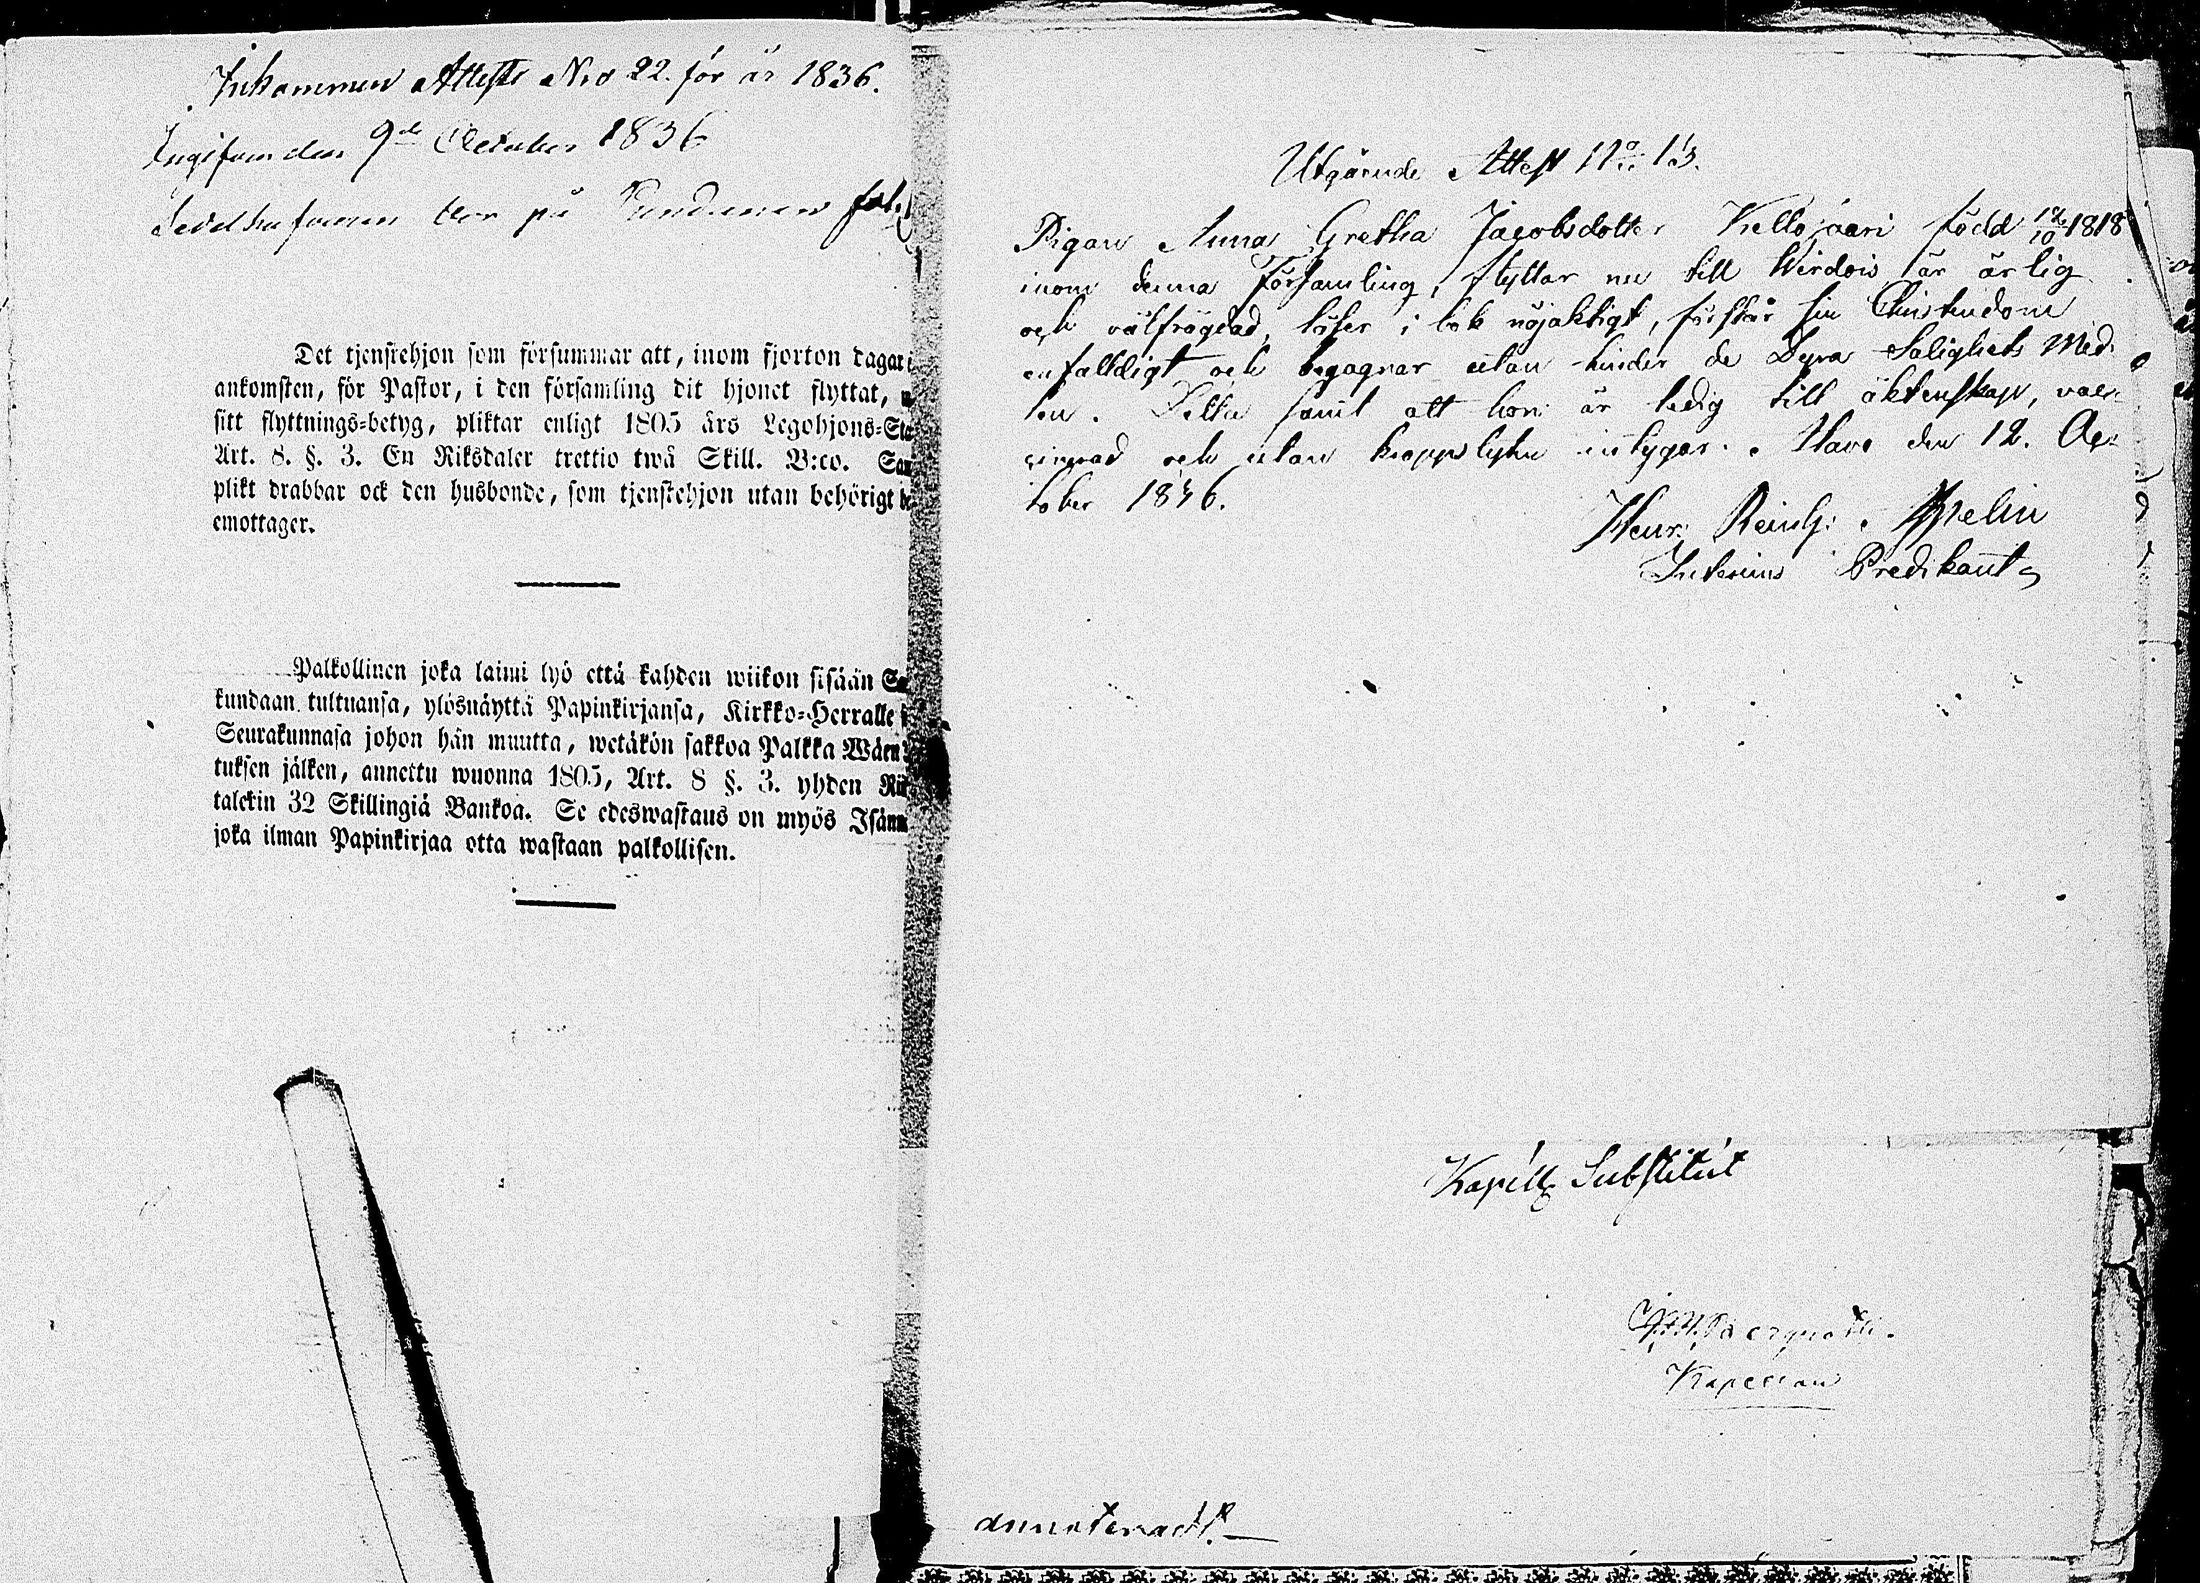 Inkommen Attest Nro 22. för år 1836.
Ingifven den 9de October 1836
på
Det tjenstehjon som försummar att, inom fjorton dagar
ankomsten, för Pastor, i den församling dit hjonet flyttat,
sitt flyttnings-betyg, pliktar enligt 1805 års Legohjons-Sta
Art. 8. §. 3. En Riksdaler trettio twå Skill. B:co. Sam
plikt drabbar ock den husbonde, som tjenstehjon utan behörigt be
emottager.
Palkollinen joka laimi lyö että kahden wiikon sisään Se
kundaan tultuansa, ylösnäyttä Papinkirjansa, Kirkko-Herralle
Seurakunnasa johon hän muutta, wetäkön sakkoa Palkka Wäen
tuksen jälken, annettu wuonna 1805, Art. 8 §. 3. yhden Rii
talerin 32 Skillingiä Bankoa. Se edeswastaus on myös Isänn
joka ilman Papinkirjaa otta wastaan palkollisen.
Utgående Attest No 13.
Pigan Anna Gretha Jacobsdotter Kellojaari född 12/10 1818
inom denna Församling, flyttar nu till Wirdois är ärlig
och välfrägdad, läser i bok nöjaktigt, förstår sin Christendom
enfalldigt och begagnar utan hinder de Dyra Salighets Med
len. Detta samt att hon är ledig till äktenskap, vac
cinerad och utan kroppslyten intygar. Alavo den 12. Oc
tober 1836.
Henr: Reinh: Appelin
Interims Predikant
Kapells Substitut
Kapellan
annoteradt.